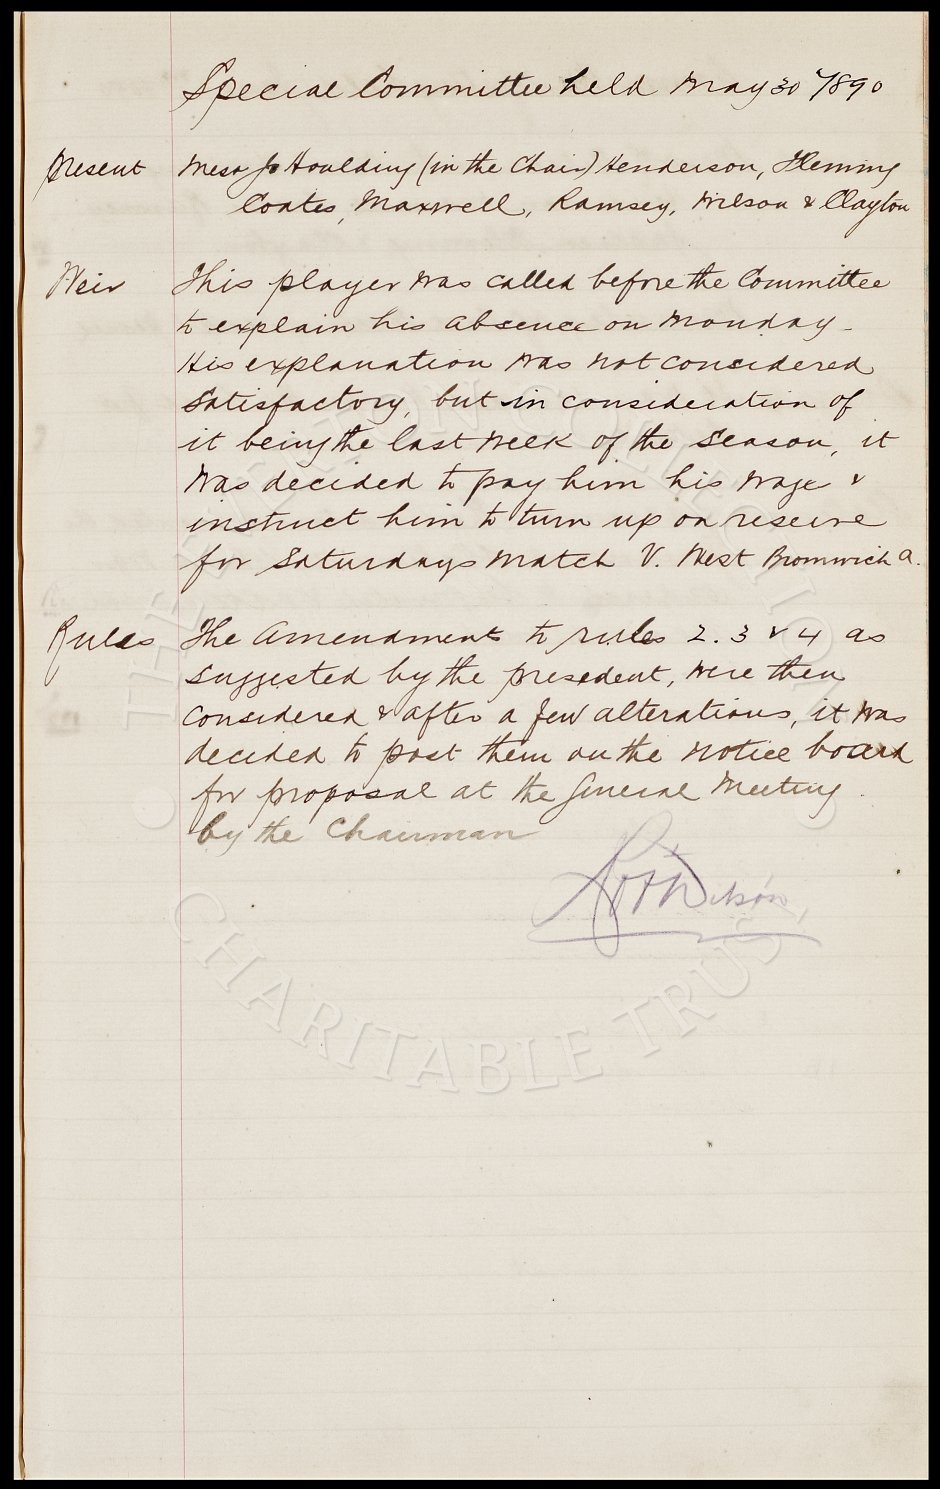 Special Committee held May 30th/890
Present Messrs Jo Houlding (in the Chair) Henderson, Fleming
Coates, Maxwell, Ramsey, Wilson & Clayton
Weir This player was called before the Committee
to explain his absence on Monday.
His explanation was not considered
satisfactory, but in consideration of
it being the last week of the season, it
was decided to pay him his wage &
instruct him to turn up on reserve
for Saturdays match V. West Bromwich A.
Rules The Amendments to rules 2. 3 & 4 as
suggested by the president, were then
considered & after a few alterations, it was
decided to post them on the notice board
for proposal at the General Meeting.
by the Chairman
Wilson
THE EVERTON COLLECTION
CHARITABLE TRUST